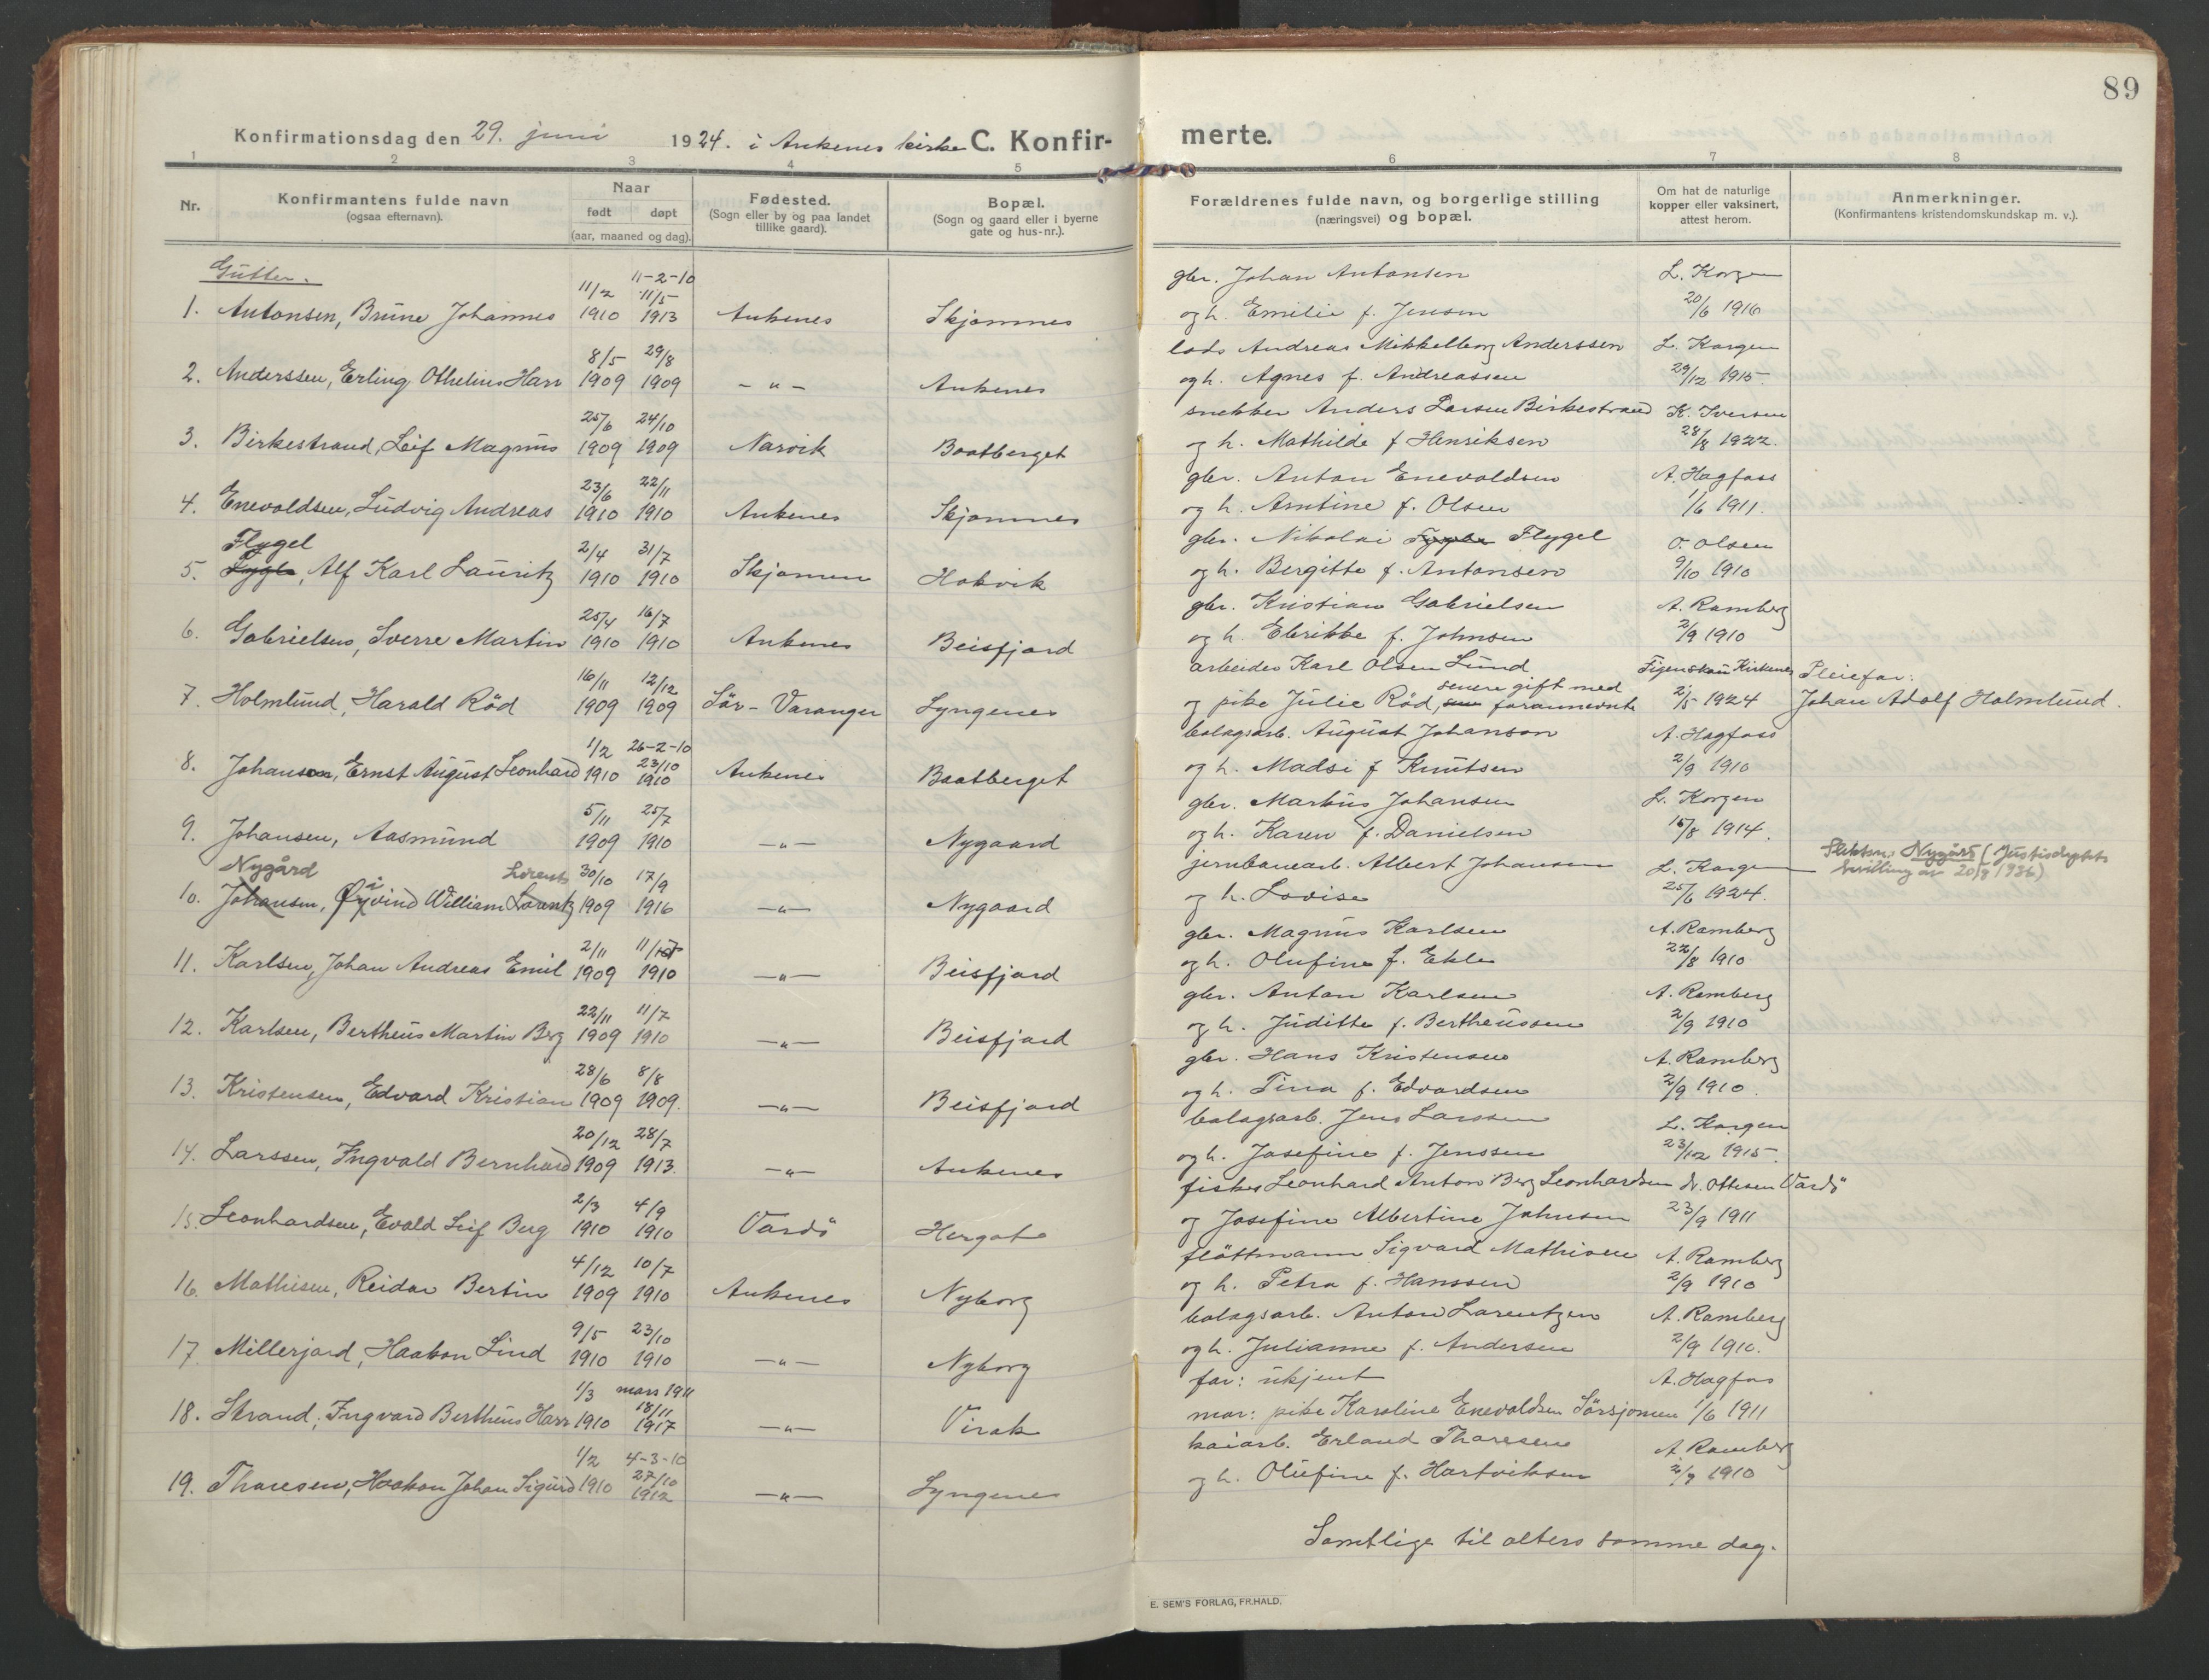 89
Konfirmationsdag den 29. juni 1924. i Ankenes kirke C. Konfir-
merte.
1 2 3 4 5 6 7 8
Nr.
Konfirmantens fulde navn
(ogsaa efternavn).
Naar
født døpt
(aar, maaned og dag).
Fødested.
(Sogn eller by og paa landet
tillike gaard).
Bopæl.
(Sogn og gaard eller i byerne
gate og hus-nr.).
Forældrenes fulde navn, og borgerlige stilling
(næringsvei) og bopæl.
Om hat de naturlige
kopper eller vaksinert,
attest herom.
Anmerkninger.
(Konfirmantens kristendomskundskap m. v.).
Gutter.
11/2 11-2-10 11/5
gbr. Johan Antonsen L. Korgen
1. Antonsen, Brune Johannes 1910 1913 Ankenes Skjomnes
og h. Emilie f. Jensen 20/6 1916
8/5 29/8
lods Andreas Mikkelborg Anderssen L. Korgen
2. Anderssen, Erling Othelius Harr 1909 1909 - " - Ankenes
og h. Agnes f. Andreassen 29/12 1915.
25/6 24/10
snekker Anders Larsen Birkestrand K. Iversen
3. Birkestrand, Leif Magnus 1909 1909 Narvik Baatberget
og h. Mathilde f Henriksen 28/8 1922.
23/6 22/11
gbr. Anton Enevoldsen A. Hagfoss
4. Enevoldsen, Ludvig Andreas 1910 1910 Ankenes Skjomnes
og h. Arntine f. Olsen 1/6 1911.
Flygel
2/4 31/7
gbr. Nikolai Flygel O. Olsen
5. Alf Karl Lauritz 1910 1910 Skjomen Hakvik
og h. Bergitte f. Antonsen 9/10 1910
25/4 16/7
gbr. Kristian Gabrielsen A. Ramberg
6. Gabrielsen, Sverre Martin 1910 1910 Ankenes Beisfjord
og h. Elerikke f. Johnsen 2/9 1910
16/11 12/12
arbeider Karl Olsen Lund Figenskau Kirkenes Pleiefar:
senere gift med
7. Holmlund, Harald Rød 1909 1909 Sør-Varanger Lyngenes
og pike Julie Rød, forannevnte 2/5 1924 Johan Adolf Holmlund.
1/2 26-2-10 23/10
bolagsarb. August Johanson A. Hagfoss
8. Johanson, Ernst August Leonhard 1910 1910 Ankenes Baatberget
og h. Madsi f Knutsen 2/9 1910
5/11 25/7
gbr. Markus Johansen L. Korgen
9. Johansen, Aasmund 1909 1910 -"- Nygaard
og h. Karen f. Danielsen 15/8 1914.
Nygård Lorents 30/10 17/9
jernbanearb. Albert Johansen L. Korgen
Slektsn. Nygård (Justisdeptets
bevilling av 20/8 1936)
10. Johansen, Øyvind William Lorentz 1909 1916 -"- Nygaard
og h. Lovise 25/6 1924.
2/11 11/7
gbr. Magnus Karlsen A. Ramberg
11. Karlsen, Johan Andreas Emil 1909 1910 -"- Beisfjord
og h. Olufine f. Ekle 22/8 1910
22/11 11/7
gbr. Anton Karlsen A. Ramberg
12. Karlsen, Bertheus Martin Berg 1909 1910 -"- Beisfjord
og h. Juditte f. Bertheussen 2/9 1910
28/6 8/8
gbr. Hans Kristensen A. Ramberg
13. Kristensen, Edvard Kristian 1909 1909. -"- Beisfjord
og h. Tina f. Edvardsen 2/9 1910.
20/12 28/7
bolagsarb. Jens Larssen L. Korgen
14. Larssen, Ingvald Bernhard 1909 1913. -"- Ankenes
og h. Josefine f. Jenssen 23/12 1915.
2/3 4/9
fisker Leonhard Anton Berg Leonhardsen N. Ottesen Vardö
15. Leonhardsen, Evald Leif Berg 1910 1910 Vardö Hergot
og Josefine Albertine Johnsen 23/9 1911
4/12 10/7
fløttmann Sigvard Mathisen A. Ramberg
16. Mathisen, Reidar Bertin 1909 1910 Ankenes Nyborg
og h. Petra f. Hanssen 2/9 1910
9/5 23/10
bolagsarb. Anton Larentzen A. Ramberg
17. Millerjord, Haakon Lind 1910 1910 -"- Nyborg
og h. Julianne f. Andersen 2/9 1910.
1/3 mars 1911 18/11
far: ukjent A. Hagfos
18. Strand, Ingvard Bertheus Harr 1910 1917 -"- Virak
mor: pike Karoline Enevoldsen Sörsjomen 1/6 1911
1/2 4-3-10 27/10
kaiarb. Erland Thoresen A. Ramberg
19. Thoresen, Haakon Johan Sigurd 1910 1912 -"- Lyngenes
og h. Olufine f. Hartviksen 2/9 1910
Samtlige til alters samme dag.
E. SEM'S FORLAG, FR.HALD.